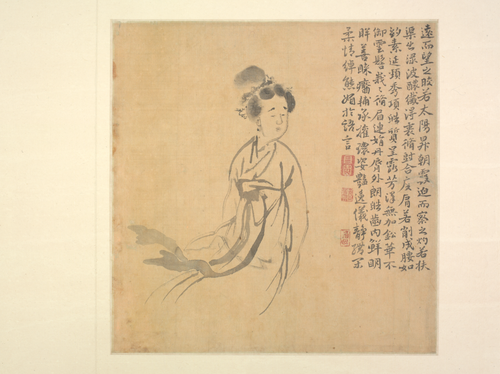 遠而望之皎若太陽昇朝霞迫而察之灼若扶
渠出淥波穠纖得衷脩短合度肩若削成腰如
約素延頸秀項皓質呈露芳澤無加鉛華不
御雲髻峩峩脩眉連娟丹脣外朗皓齒內鮮明
眸善睞靨輔承權瓌姿豔逸儀靜體閑
柔情綽態媚於語言